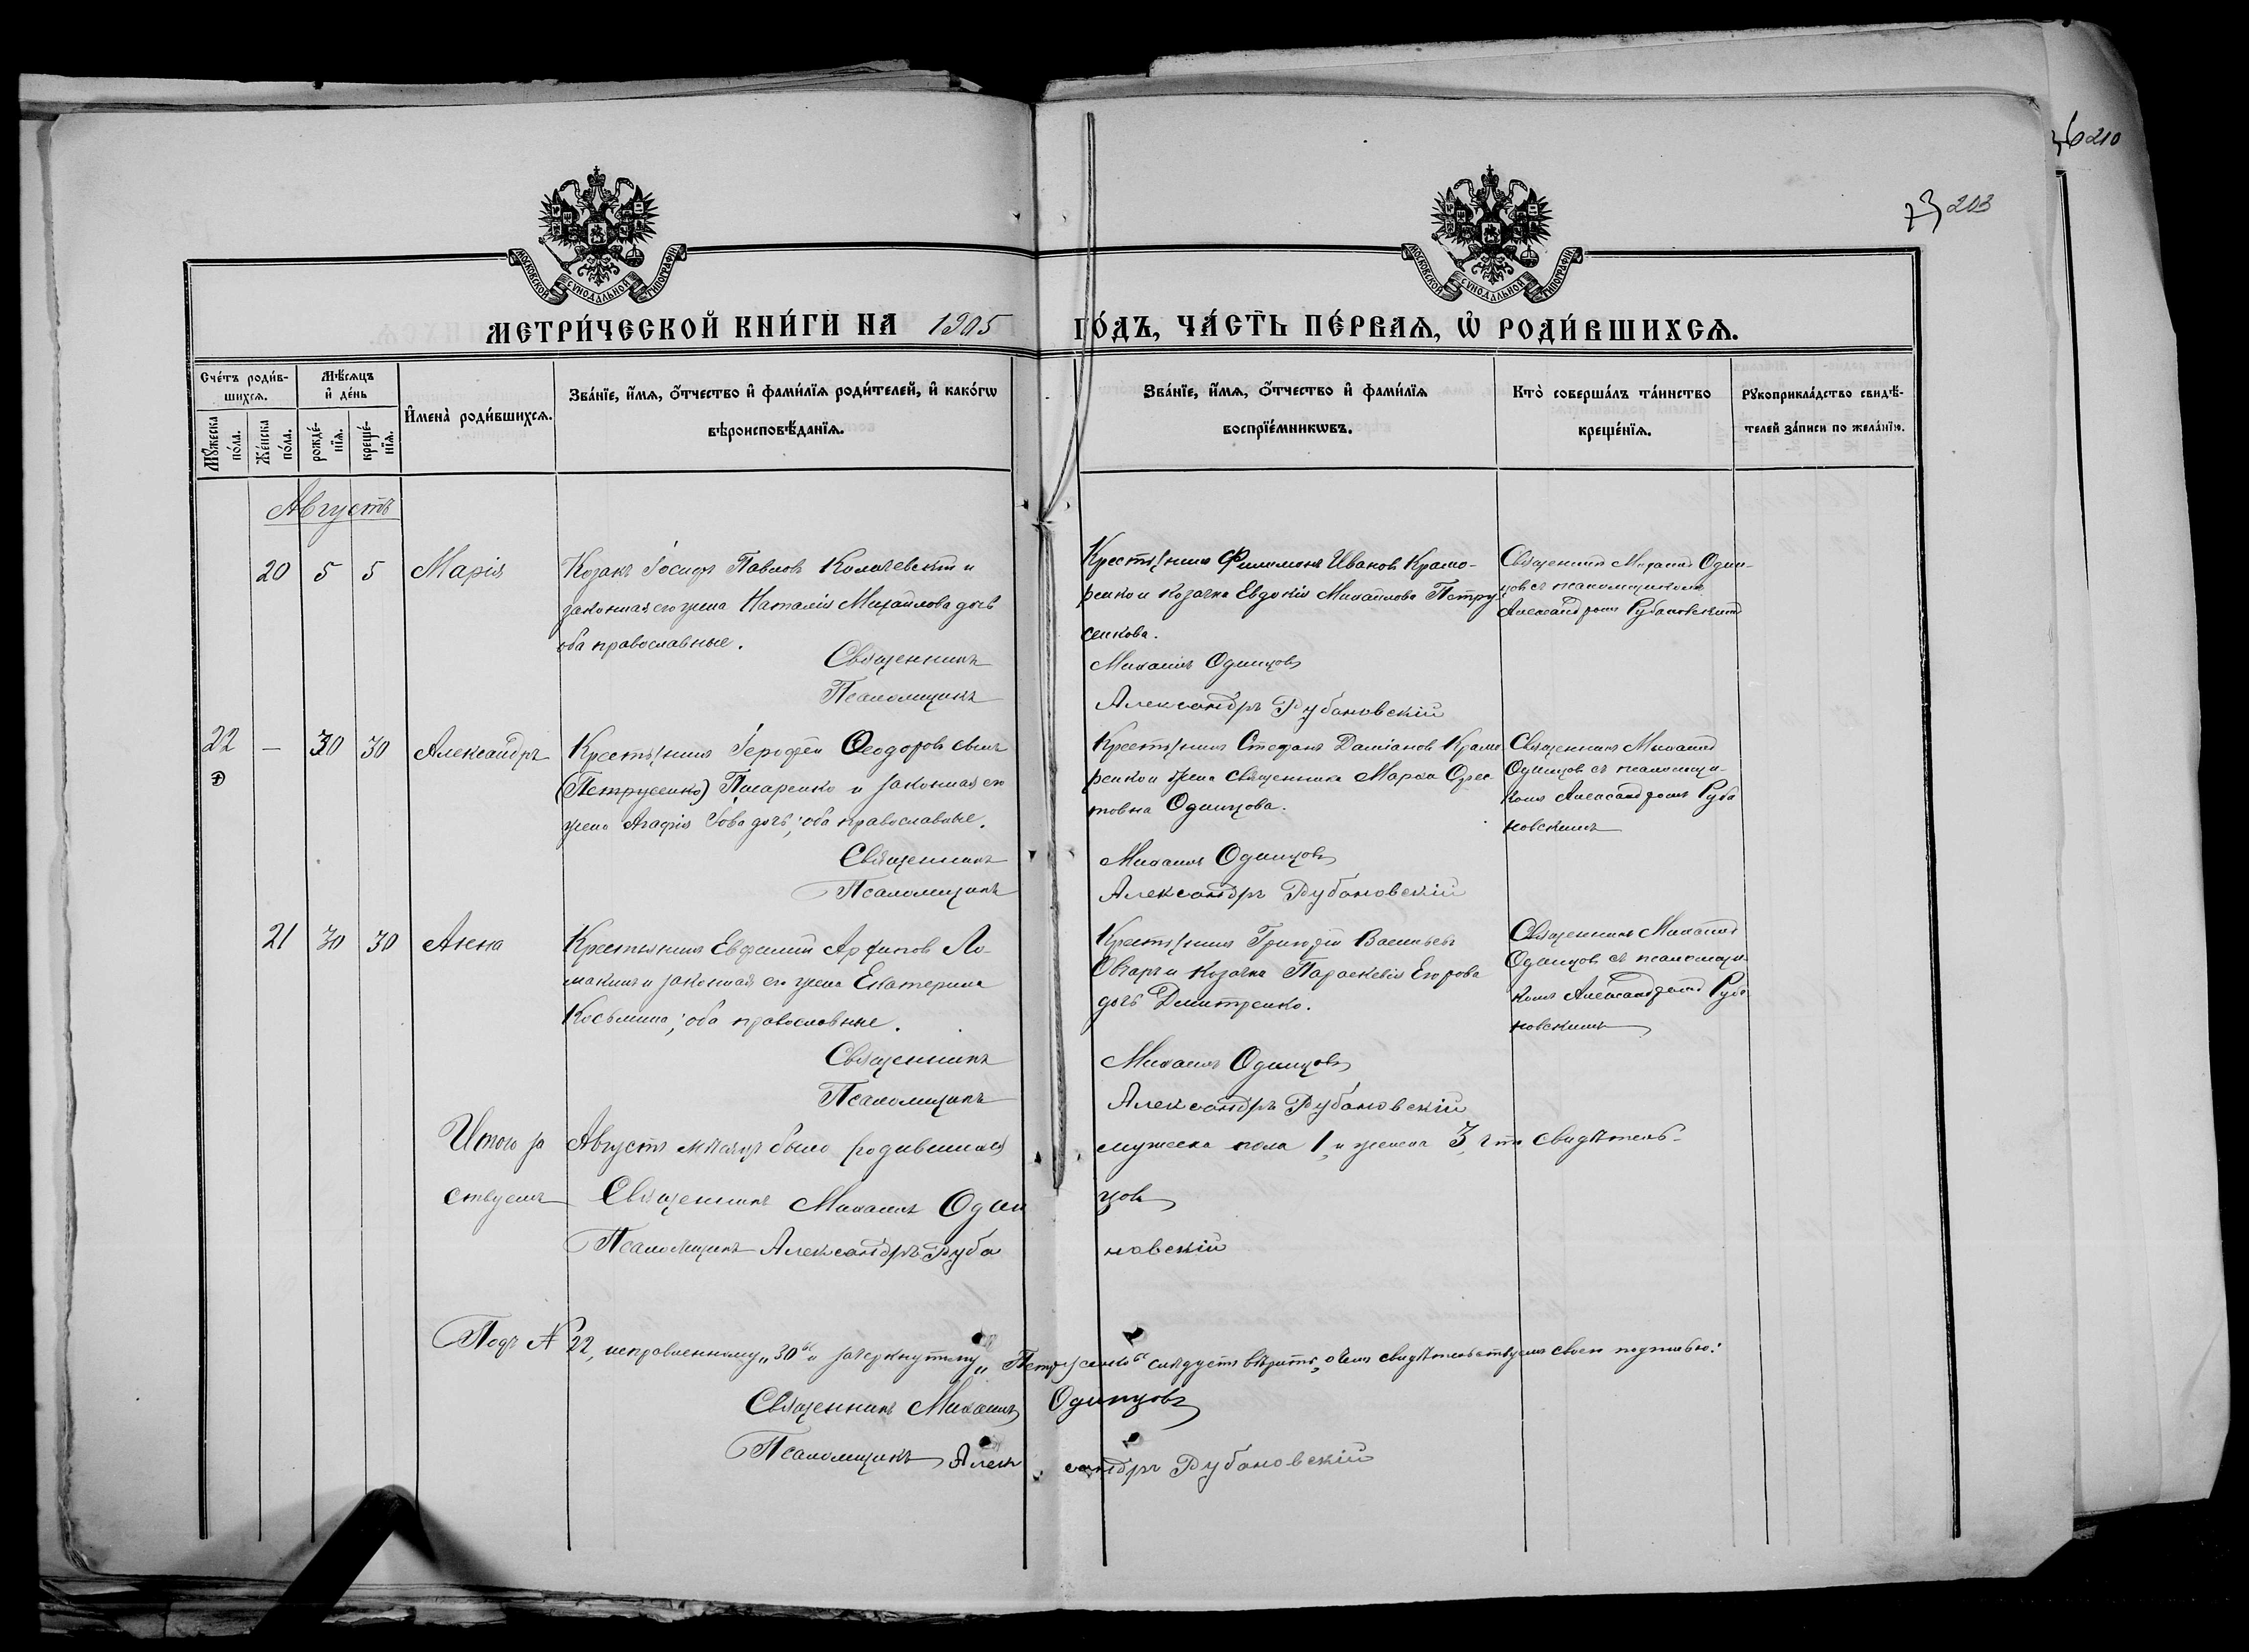 210
73 203
МОСКОВСКОЙ СѴНОДАЛЬНОЙ ТИПОГРАФІИ
МОСКОВСКОЙ СѴНОДАЛЬНОЙ ТИПОГРАФІИ
МЕТРИ́ЧЕСКОЙ КНИ́ГИ НА 1905 ГО́ДЪ, ЧА́СТЬ ПЕ́РВАЯ, Ѡ҆ РОДИ́ВШИХСѦ.
Сче́тъ роди́в-
шихсѧ.
Мѣ́сяцъ
и҆ де́нь
Мꙋ́жеска по́ла.
Же́нска по́ла.
рожде́-нїѧ.
креще́-нїѧ.
И҆мена̀ роди́вшихсѧ.
Зва́нїе, и҆́мѧ, ѻ҆́тчество и҆ фами́лїѧ роди́телей, и҆ како́гѡ
вѣроисповѣ́данїѧ.
Зва́нїе, и҆́мѧ, ѻ҆́тчество и҆ фами́лїѧ
воспрїе́мникѡвъ.
Кто̀ соверша́лъ та́инство
креще́нїѧ.
Рꙋкоприкла́дство свидѣ́-
телей за́писи по жела́нїю.
Августъ
20 5 5 Марія
Козакъ Іосифъ Павловъ и
законная его жена Наталія Михайлова дочь
оба православные.
Священникъ
Псаломщикъ
Крестьянинъ Филимонъ Ивановъ Крамо-
ренко и козачка Евдокія Михайлова Петру
сенкова.
Михаилъ Одинцовъ
Александръ Рубановскій
Священникъ Михаилъ Один-
цовъ съ псаломщикомъ
Александромъ Рубановскимъ
22 — 30 30 Александръ
Крестьянинъ Іерофей Ѳеодоровъ сынъ
(Петрусенко) Писаренко и законная его
жена Агафія Іова дочь; оба православные.
Священникъ
Псаломщикъ
Крестьянинъ Стефанъ Даміановъ Крамо
ренко и жена священника Марія Орес
товна Одинцова.
Михаилъ Одинцовъ
Александръ Рубановскій
Священникъ Михаилъ
Одинцовъ съ псаломщи-
комъ Александромъ Руба
новскимъ
21 30 30 Анна
Крестьянинъ Евфимій Архиповъ Ло-
макинъ и законная его жена Екатерина
Косьмина; оба православные.
Священникъ
Псаломщикъ
Крестьянинъ Григорій Васильевъ
Овчаръ и козачка Параскевія Егорова
дочь Дмитренко.
Михаилъ Одинцовъ
Александръ Рубановскій
Священникъ Михаилъ
Одинцовъ съ псаломщи-
комъ Александромъ Руба
новскимъ
Итого за Августъ мѣсяцъ было родившихся мужеска пола 1, и женска 3, что свидѣтель-
ствуемъ Священникъ Михаилъ Одинцовъ
Псаломщикъ Александръ Рубановскій
Подъ № 22, исправленному „30“ и зачеркнутому „Петрусенко“ слѣдуетъ вѣрить, о чемъ свидѣтельствуемъ своею подписью:
Священникъ Михаилъ Одинцовъ
Псаломщикъ Александръ Рубановскій